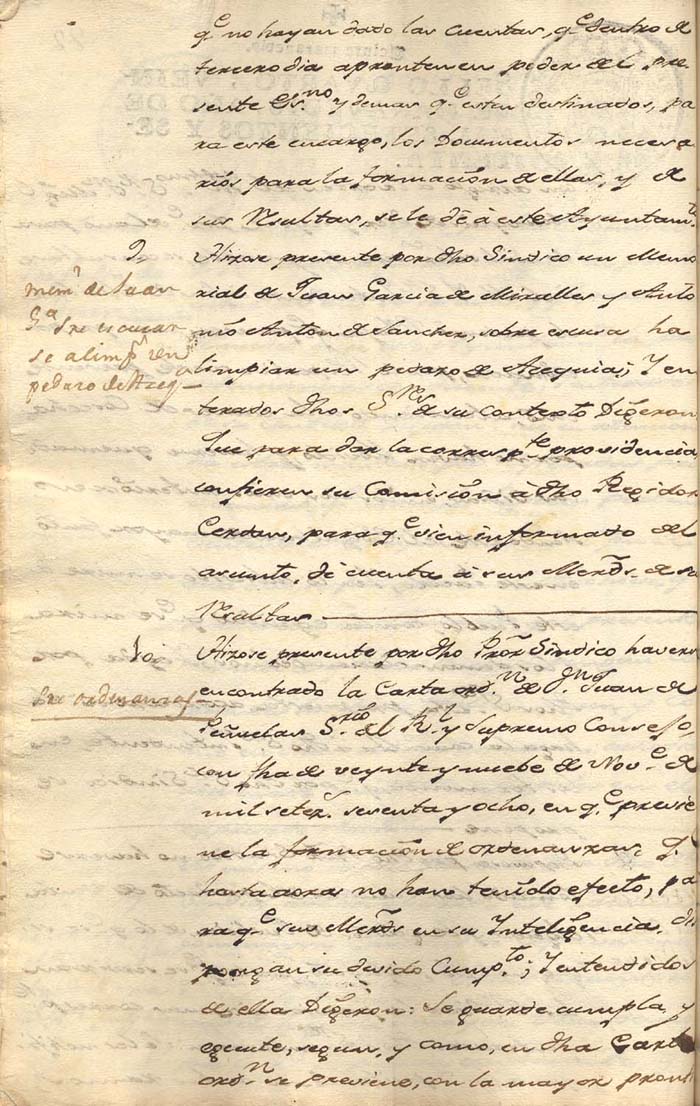 q.e no hayan dado las cuentas, q.e dentro de
tercero dia apronten en poder del pre-
sente Es.no y demas q.e esten destinados, pa
ra este encargo, los Documentos necesa
rios para la formación de ellas, y de
sus Resultas, se le dé à este Ayuntam.to
9
Hizose presente por dho Sindico un Memo
rial de Juan Garcia de Miralles y Anto
nio Anton de Sanchez, sobre escusa ha
limpiar un pedazo de Azequia; Y en
terados dhos S.res de su contexto Digeron
Que para dar la corresp.te providencia
confieren su Comisión à dho Regidor
Cerdan, para q.e bien informado del
asunto, dé cuenta à sus Merds. de sa
Resultas
mem.l de Juan
G.a sre escusar
se a limp.r un
pedazo de Azeq.a
10
Hizose presente por dho Pror Sindico haverse
encontrado la Carta ord.n de D.n Juan de
Peñuelas S.rio del R.l y Supremo Consejo,
con fha de veynte y nuebe de Nov.e de
mil setez.s sesenta y ocho, en q.e previe
ne la formación de ordenanzas, q.e
hasta aora no han tenido efecto, pa
ra q.e sus Merds en su Inteligencia, dis
pongan su devido Cump.to; Y entendidos
de ella Digeron: Se guarde cumpla, y
egecute, segun, y como, en dha Carta
ord.n se previene, con la mayor pronti
sre ordenanzas